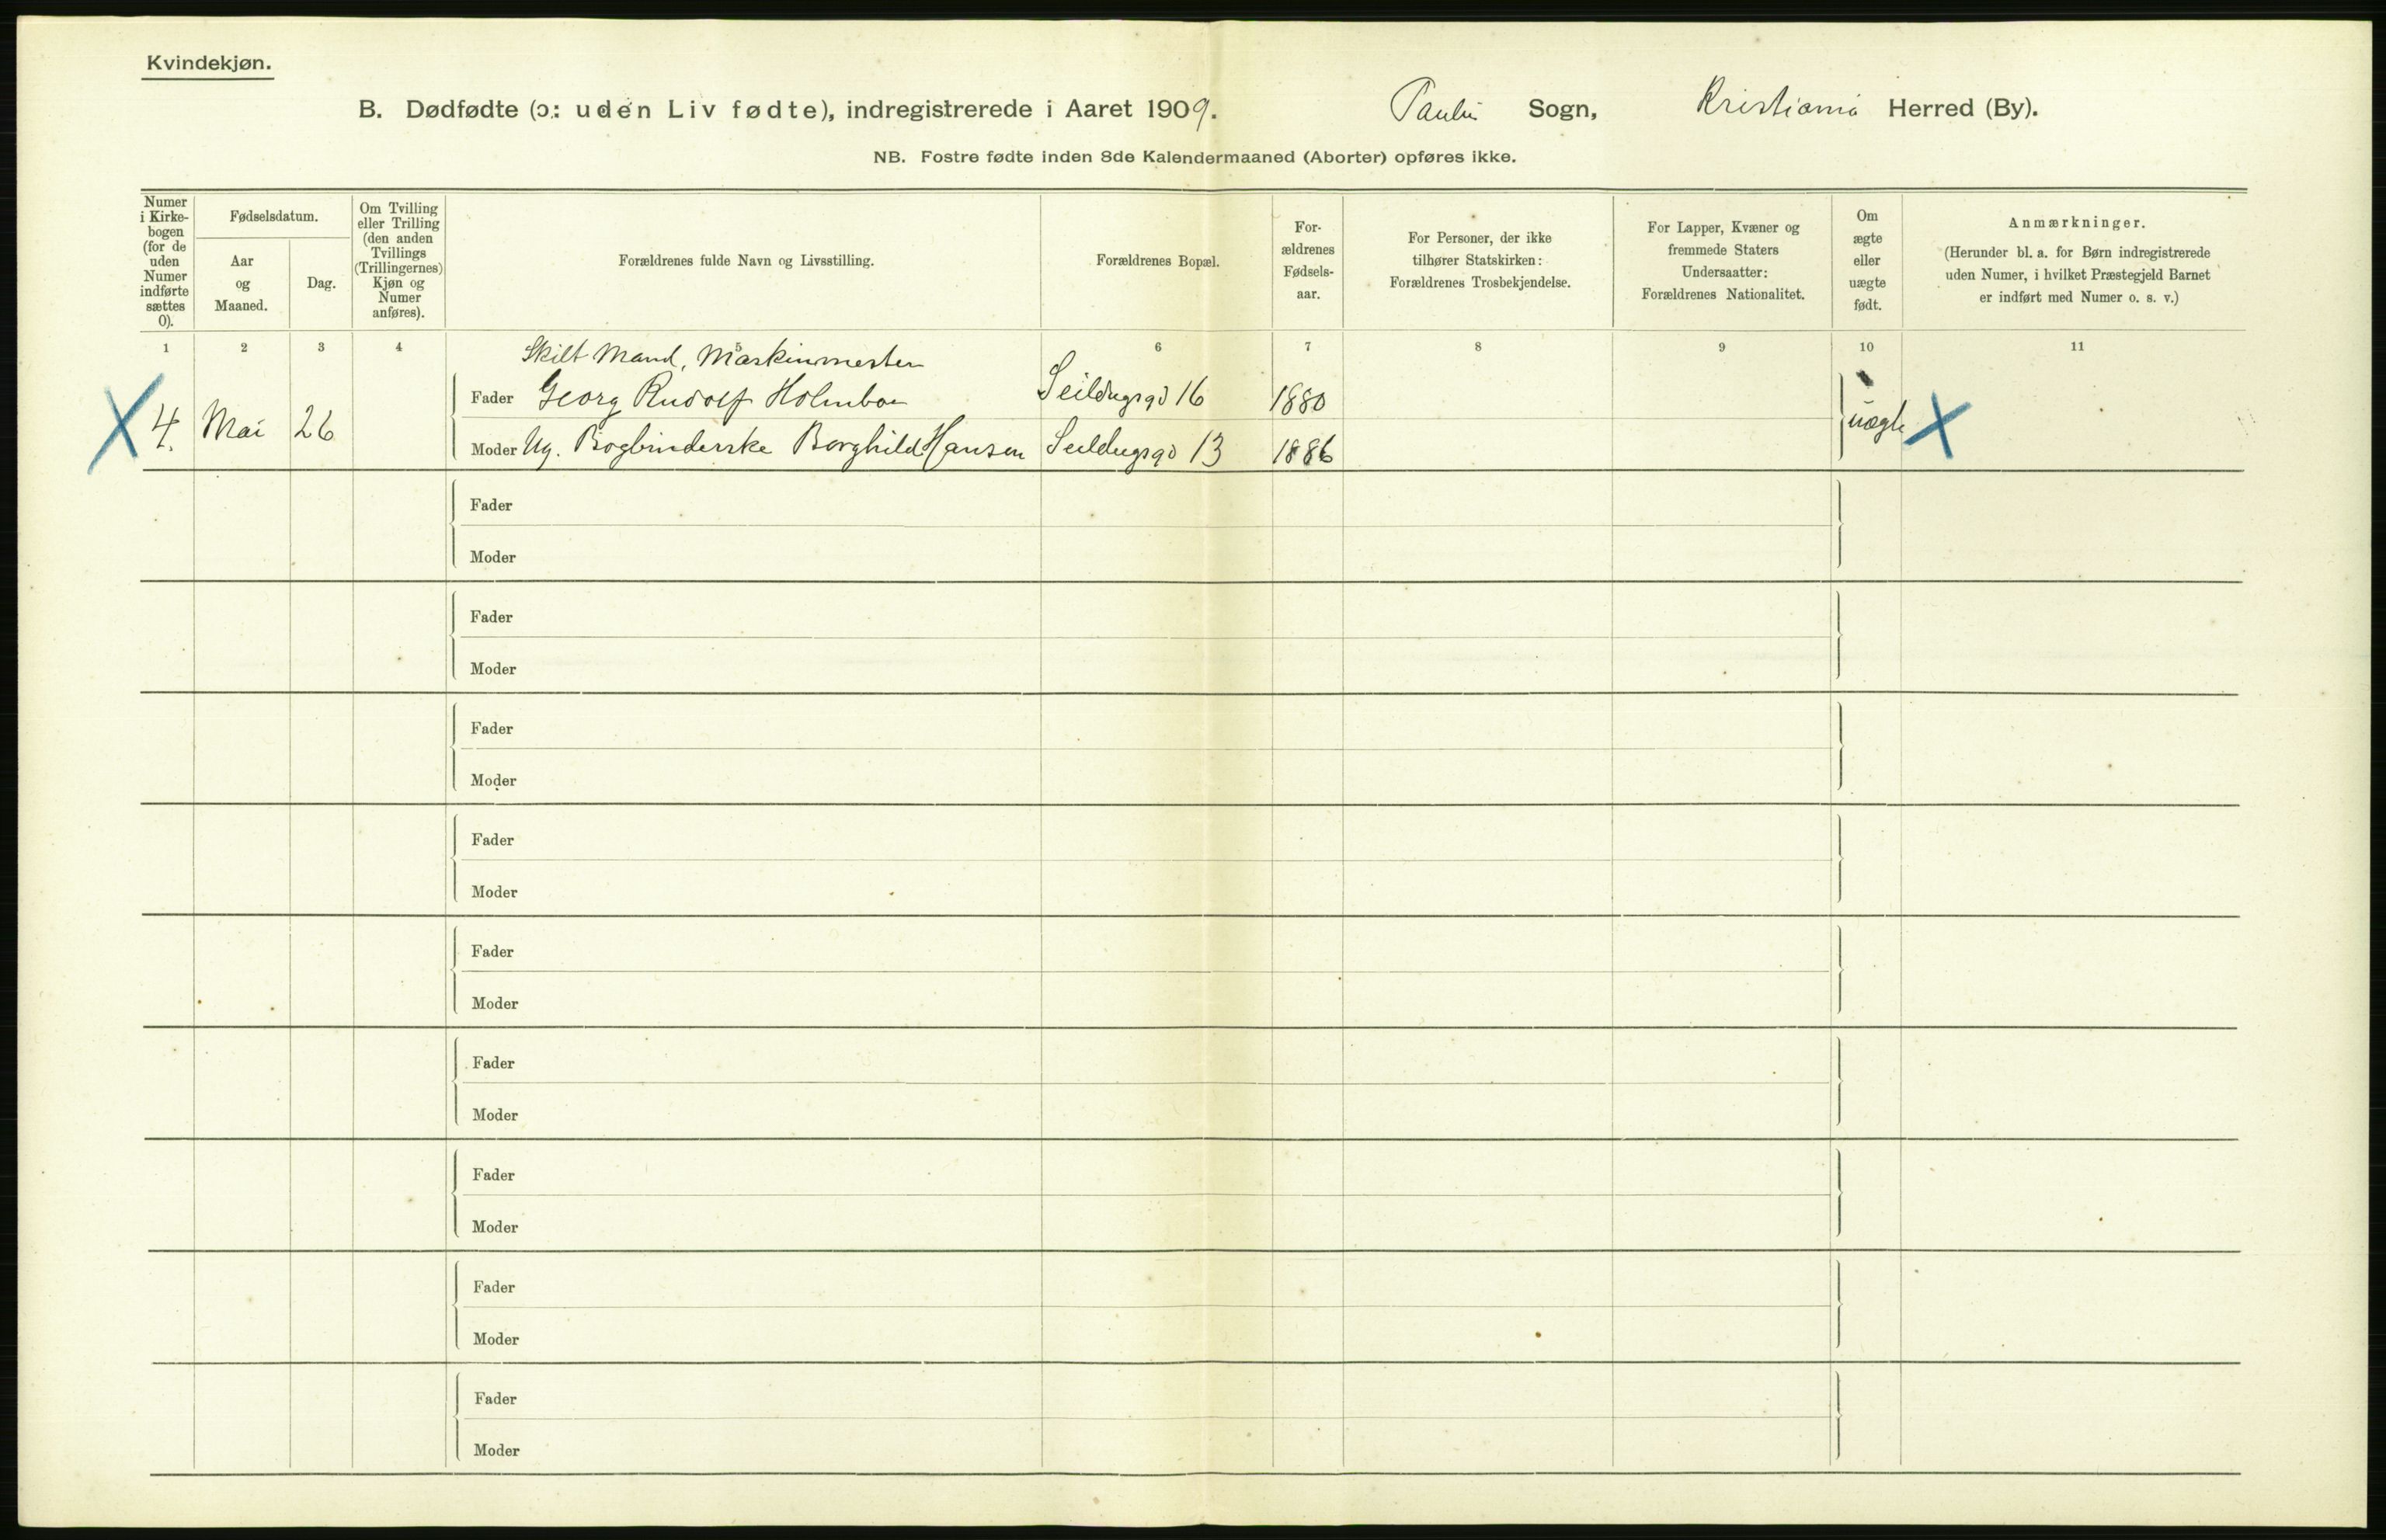 Kvindekjøn.
B. Dødfødte (ɔ: uden Liv fødte), indregistrerede i Aaret 1909. Pauli Sogn, Kristiania Herred (By).
NB. Fostre fødte inden 8de Kalendermaaned (Aborter) opføres ikke.
Numer i Kirke-bogen (for de uden Numer indførte sættes 0).
Fødselsdatum.
Aar og Maaned.
Dag.
Om Tvilling eller Trilling (den anden Tvillings (Trillingernes) Kjøn og Numer anføres).
Forældrenes fulde Navn og Livsstilling.
Forældrenes Bopæl.
For-ældrenes Fødsels-aar.
For Personer, der ikke tilhører Statskirken: Forældrenes Trosbekjendelse.
For Lapper, Kvæner og fremmede Staters Undersaatter: Forældrenes Nationalitet.
Om ægte eller uægte født.
Anmærkninger.
(Herunder bl. a. for Børn indregistrerede uden Numer, i hvilket Præstegjeld Barnet er indført med Numer o. s. v.)
1 2 3 4 5 6 7 8 9 10 11
Skilt Mand, Maskinmester
Fader Georg Rudolf Holmboe Seildugsgd 16 1880
X 4. Mai 26 uægte X
Moder Ug. Bogbinderske Borghild Hansen Seildugsgd 13 1886
Fader
Moder
Fader
Moder
Fader
Moder
Fader
Moder
Fader
Moder
Fader
Moder
Fader
Moder
Fader
Moder
Fader
Moder